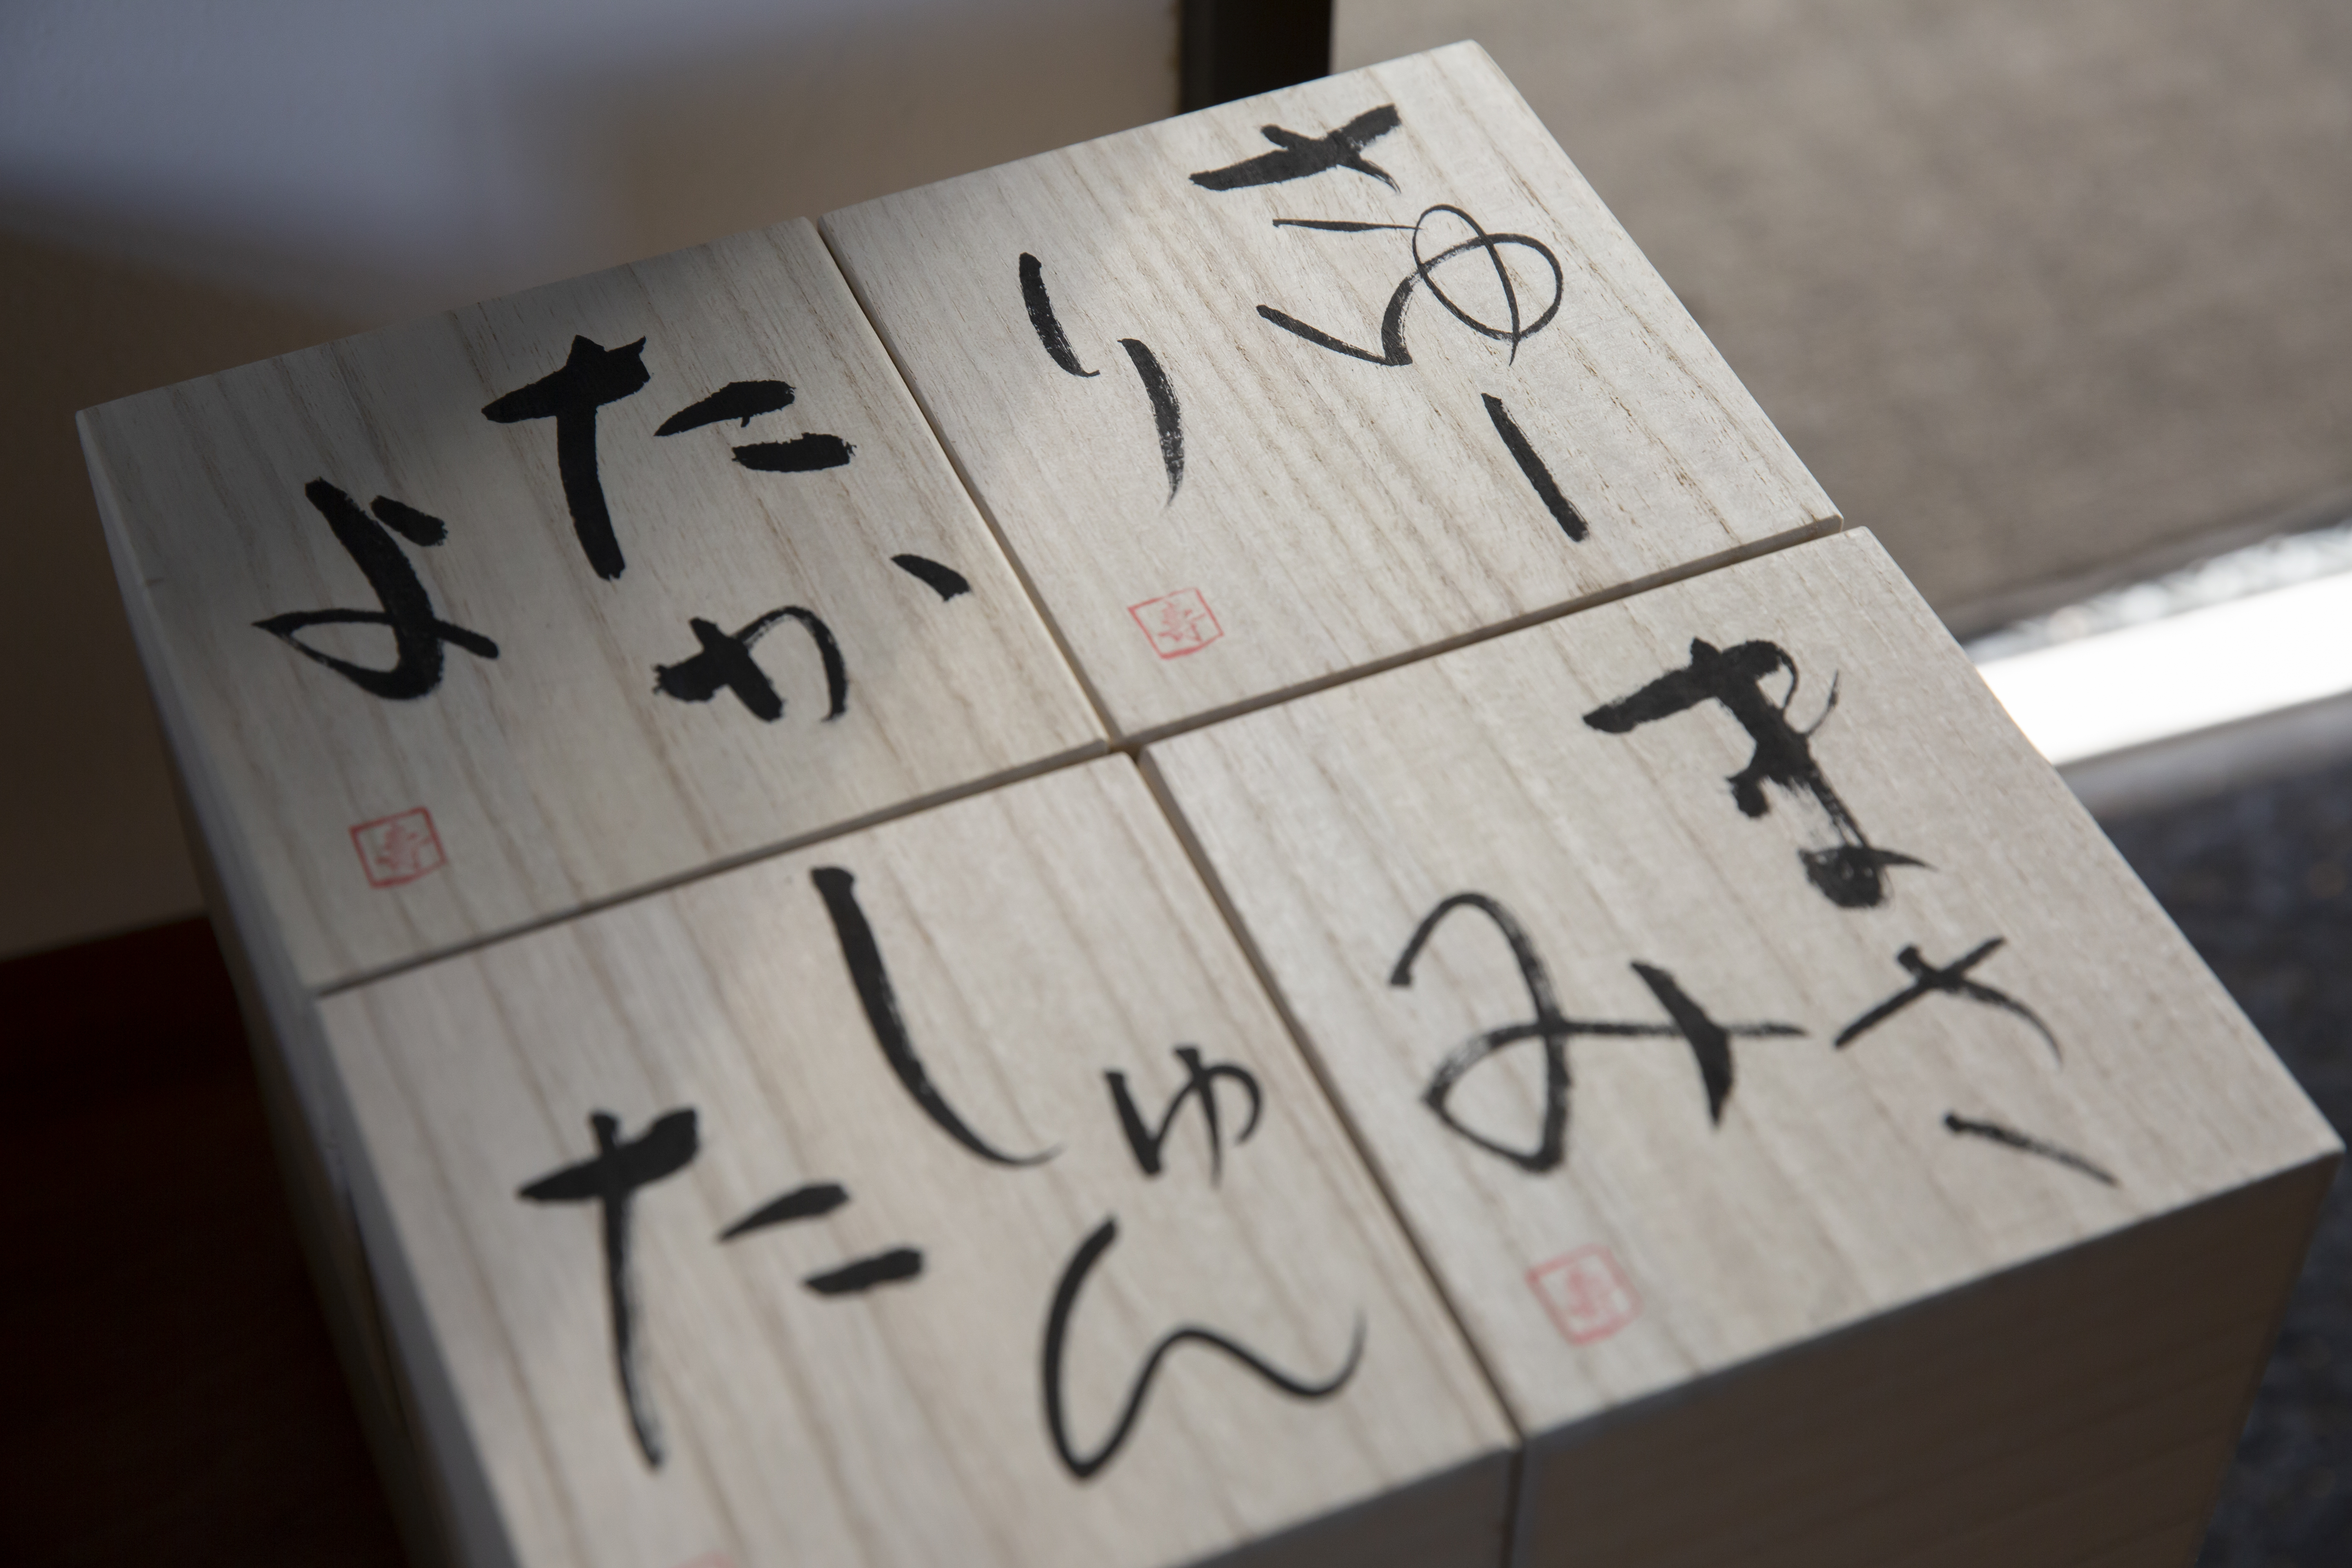 さゆー
り
たか
よ
まさ
み
しゅん
た